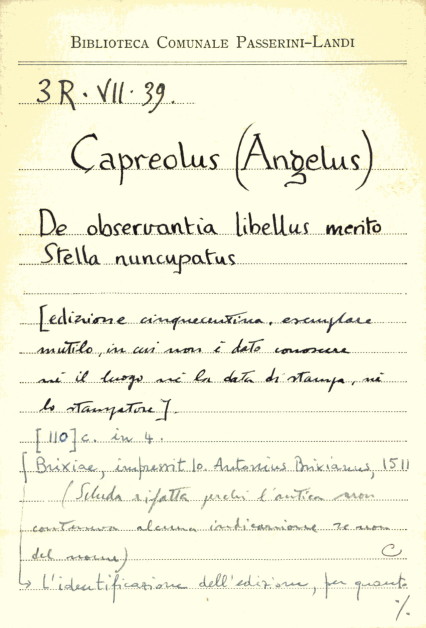 BIBLIOTECA COMUNALE PASSERINI-LANDI
3 R. VII. 39.
Capreolus (Angelus)
De observantia libellus merito
Stella nuncupatus
[edizione cinquecentina, esemplare
mutilo, in cui non è dato conoscere
né il luogo né la data di stampa, né
lo stampatore].
[110] c. in 4.
[Brixiae, impressit Io. Antonius Brixianus, 1511
(Scheda rifatta perché l'antica non
conteneva alcuna indicazione se non
del nome) C
→ L'identificazione dell'edizione, per quanto
·/.